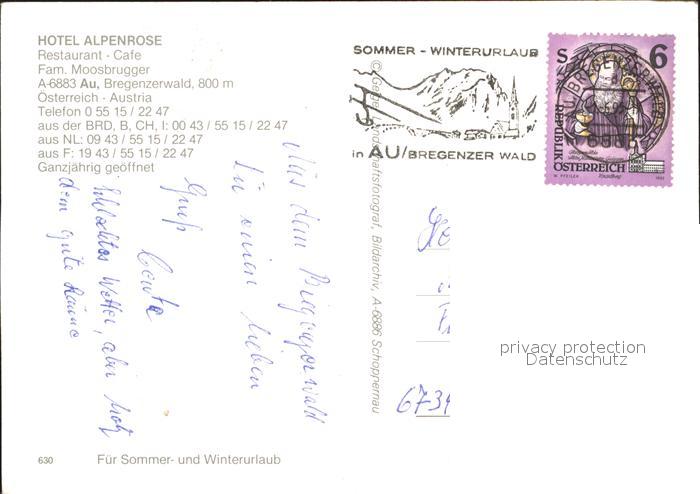 HOTEL ALPENROSE
Restaurant - Cafe
Fam. Moosbrugger
A-6883 Au, Bregenzerwald, 800 m
Österreich - Austria
Telefon 0 55 15 / 22 47
aus der BRD, B, CH, I: 00 43 / 55 15 / 22 47
aus NL: 09 43 / 55 15 / 22 47
aus F: 19 43 / 55 15 / 22 47
Ganzjährig geöffnet
Aus dem Bregenzerwald
einen lieben
Gruß
Schlechtes Wetter, aber trotz
dem gute Laune
630
Für Sommer- und Winterurlaub
Landschaftsfotograf, Bildarchiv, A-6886 Schoppernau
SOMMER - WINTERURLAUB
in AU/BREGENZER WALD
S 6
REPUBLIK
ÖSTERREICH
6734
privacy protection
Datenschutz